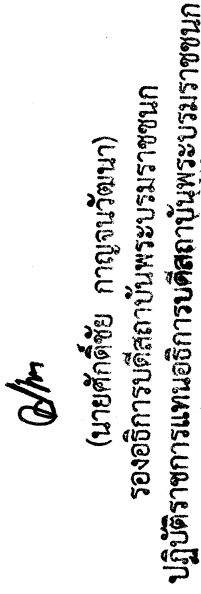 (นายศักดิ์ชัย กาญจนวัฒนา)
รองอธิการบดีสถาบันพระบรมราชชนก
ปฏิบัติราชการแทนอธิการบดีสถาบันพระบรมราชชนก